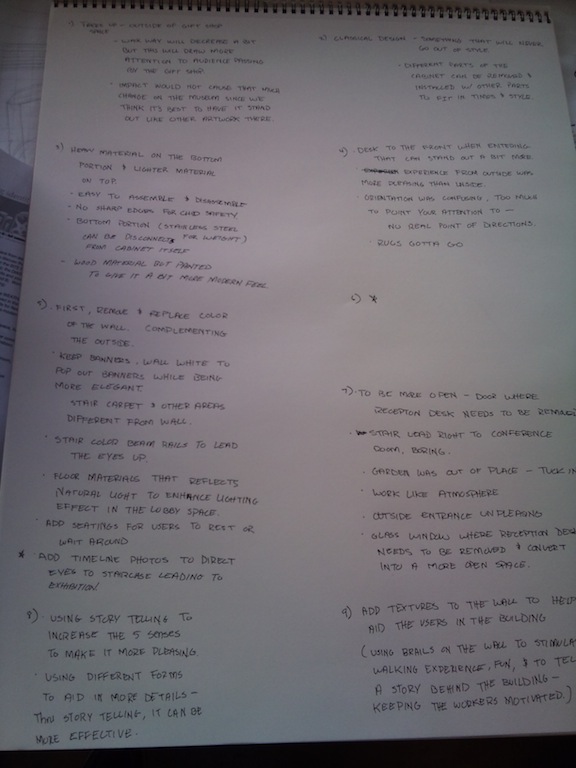 1) FRONT OF - OUTSIDE OF GIFT SHOP
SPACE
- WALK WAY WILL DECREASE A BIT
BUT THIS WILL DRAW MORE
ATTENTION TO AUDIENCE PASSING
BY THE GIFT SHOP.
• IMPACT WOULD NOT CAUSE THAT MUCH
CHANGE ON THE MUSEUM SINCE WE
THINK IT'S BEST TO HAVE IT STAND
OUT LIKE OTHER ARTWORK THERE.
2) CLASSICAL DESIGN - SOMETHING THAT WILL NEVER
GO OUT OF STYLE.
• DIFFERENT PARTS OF THE
CABINET CAN BE REMOVED &
INSTALLED W/ OTHER PARTS
TO FIT IN TIMES & STYLE.
3) HEAVY MATERIAL ON THE BOTTOM
PORTION & LIGHTER MATERIAL
ON TOP.
• EASY TO ASSEMBLE & DISASSEMBLE
• NO SHARP EDGES FOR CHILD SAFETY
• BOTTOM PORTION (STAINLESS STEEL
CAN BE DISCONNECTS FOR WEIGHT)
FROM CABINET ITSELF
- WOOD MATERIAL BUT PAINTED
TO GIVE IT A BIT MORE MODERN FEEL
4) • DESK TO THE FRONT WHEN ENTERING
THAT CAN STAND OUT A BIT MORE
EXPERIENCE FROM OUTSIDE WAS
MORE PLEASING THAN INSIDE.
• ORIENTATION WAS CONFUSING, TOO MUCH
TO POINT YOUR ATTENTION TO -
NO REAL POINT OF DIRECTIONS.
• RUGS GOTTA GO
5) • FIRST, REMOVE & REPLACE COLOR
OF THE WALL. COMPLEMENTING
THE OUTSIDE.
• KEEP BANNERS. WALL WHITE TO
POP OUT BANNERS WHILE BEING
MORE ELEGANT.
STAIR CARPET & OTHER AREAS
DIFFERENT FROM WALL.
• STAIR COLOR BEAM RAILS TO LEAD
THE EYES UP.
• FLOOR MATERIALS THAT REFLECTS
NATURAL LIGHT TO ENHANCE LIGHTING
EFFECT IN THE LOBBY SPACE.
• ADD SEATINGS FOR USERS TO REST OR
WAIT AROUND
* • ADD TIMELINE PHOTOS TO DIRECT
EYES TO STAIRCASE LEADING TO
EXHIBITION
6) *
7) • TO BE MORE OPEN - DOOR WHERE
RECEPTION DESK NEEDS TO BE REMOVED
• STAIR LEAD RIGHT TO CONFERENCE
ROOM, BORING.
• GARDEN WAS OUT OF PLACE - TUCK IN
• WORK LIKE ATMOSPHERE
• OUTSIDE ENTRANCE UNPLEASING
• GLASS WINDOWS WHERE RECEPTION DESK
NEEDS TO BE REMOVED & CONVERT
INTO A MORE OPEN SPACE.
8) • USING STORY TELLING TO
INCREASE THE 5 SENSES
TO MAKE IT MORE PLEASING.
• USING DIFFERENT FORMS
TO AID IN MORE DETAILS -
THRU STORY TELLING, IT CAN BE
MORE EFFECTIVE.
9) ADD TEXTURES TO THE WALL TO HELP
AID THE USERS IN THE BUILDING
(USING BRAILS ON THE WALL TO STIMULA
WALKING EXPERIENCE, FUN, & TO TEL
A STORY BEHIND THE BUILDING -
KEEPING THE WORKERS MOTIVATED.)